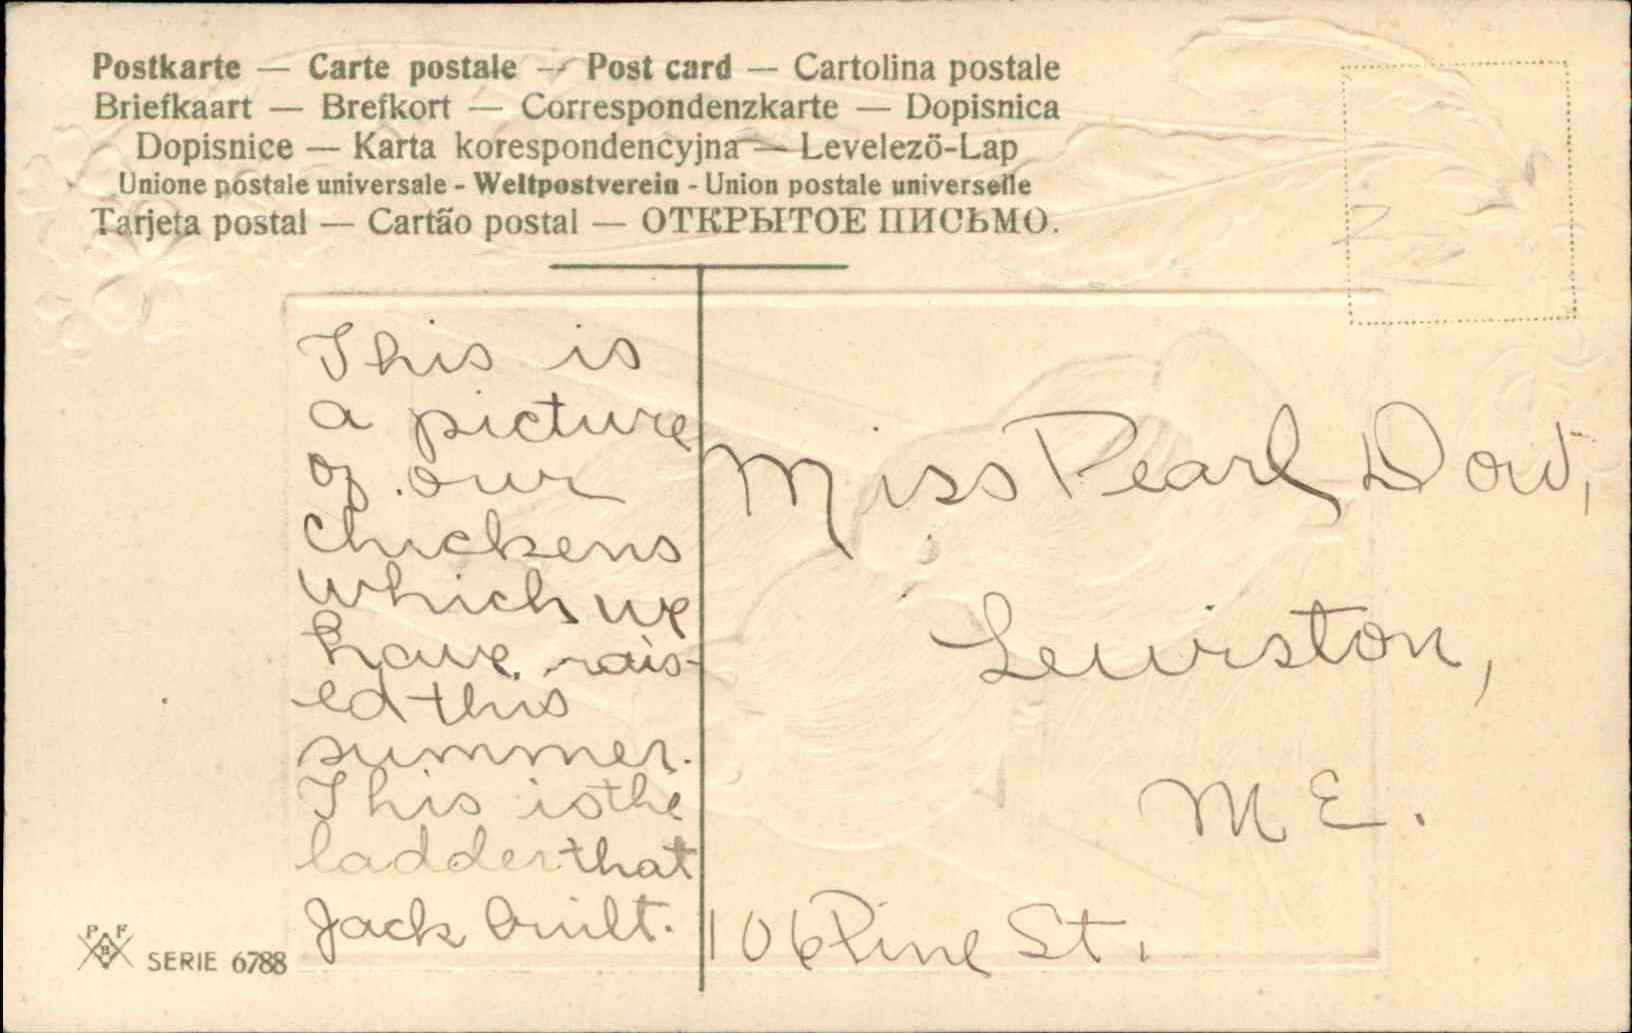 Postkarte — Carte postale — Post card — Cartolina postale
Briefkaart — Brefkort — Correspondenzkarte — Dopisnica
Dopisnice — Karta korespondencyjna — Levelezö-Lap
Unione postale universale - Weltpostverein - Union postale universelle
Tarjeta postal — Cartão postal — ОТКРЫТОЕ ПИСЬМО.
This is
a picture
of our
chickens
which we
have rais-
ed this
summer.
This is the
ladder that
Jack built.
Miss Pearl Dow,
Lewiston,
ME.
106 Pine St.
P F
B
SERIE 6788